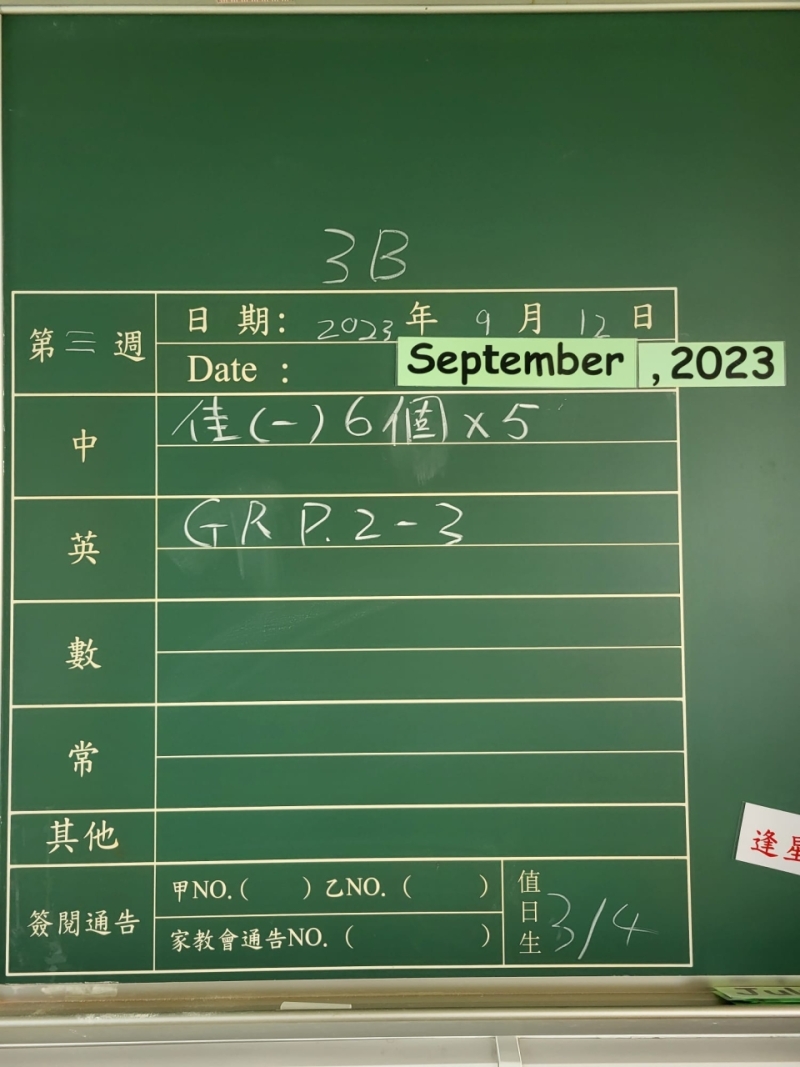 3B
第三週
日 期： 2023 年 9 月 12 日
Date ： September , 2023
中
佳(一)6個×5
英
GR P.2-3
數
常
其他
簽閱通告
甲NO.( ) 乙NO. ( )
家教會通告NO. ( )
值日生 3/4
逢星